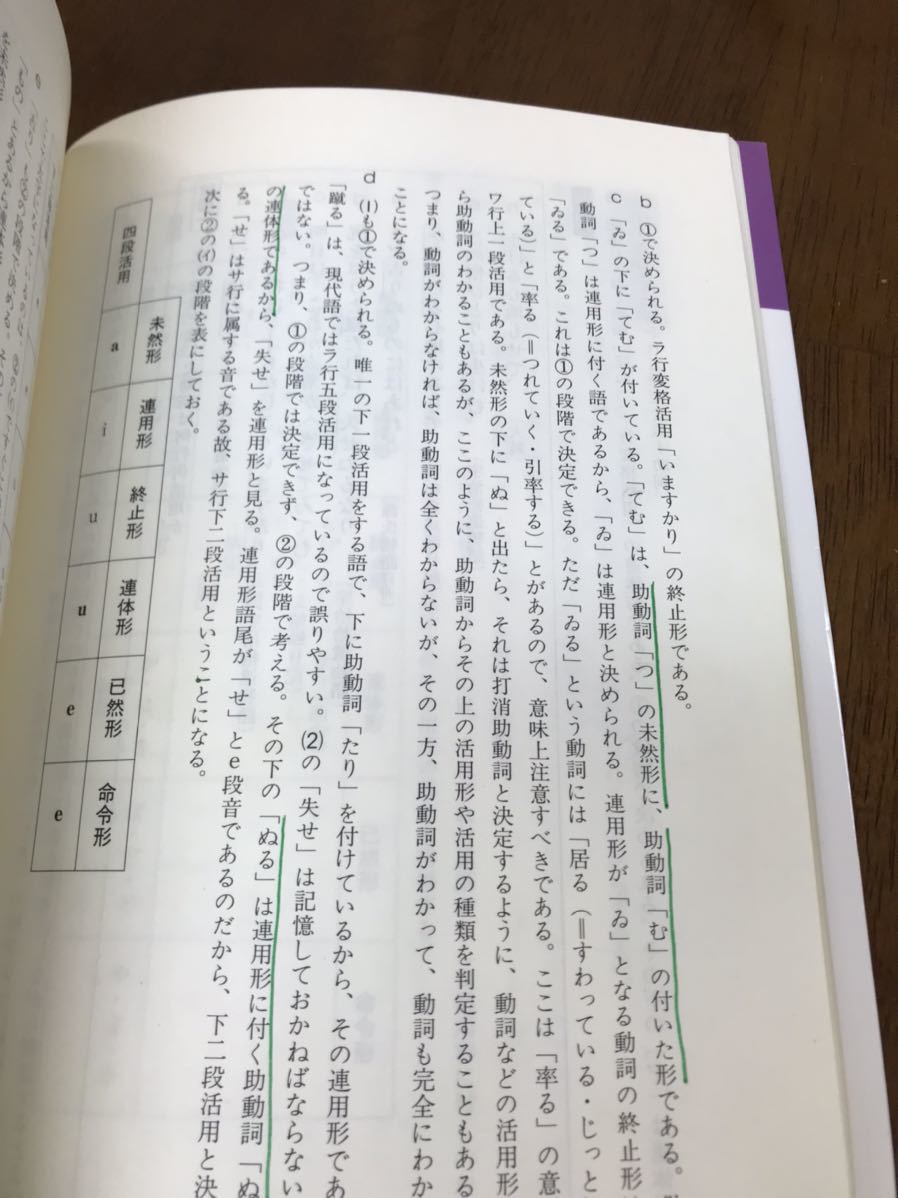 b ①で決められる。ラ行変格活用「いますかり」の終止形である。
c 「ゐ」の下に「てむ」が付いている。「てむ」は、助動詞「つ」の未然形に、助動詞「む」の付いた形である。
動詞「つ」は連用形に付く語であるから、「ゐ」は連用形と決められる。連用形が「ゐ」となる動詞の終止形
「ゐる」である。これは①の段階で決定できる。ただ「ゐる」という動詞には「居る（＝すわっている・じっと
ている）」と「率る（＝つれていく・引率する）」とがあるので、意味上注意すべきである。ここは「率る」の意
ワ行上一段活用である。未然形の下に「ぬ」と出たら、それは打消助動詞と決定するように、動詞などの活用形
ら助動詞のわかることもあるが、ここのように、助動詞からその上の活用形や活用の種類を判定することもある
つまり、動詞がわからなければ、助動詞は全くわからないが、その一方、助動詞がわかって、動詞も完全にわか
ことになる。
d ⑴も①で決められる。唯一の下一段活用をする語で、下に助動詞「たり」を付けているから、その連用形であ
「蹴る」は、現代語ではラ行五段活用になっているので誤りやすい。⑵の「失せ」は記憶しておかねばならない
ではない。つまり、①の段階では決定できず、②の段階で考える。その下の「ぬる」は連用形に付く助動詞「ぬ
の連体形であるから、「失せ」を連用形と見る。連用形語尾が「せ」とe段音であるのだから、下二段活用と決
る。「せ」はサ行に属する音である故、サ行下二段活用ということになる。
次に②の(イ)の段階を表にしておく。
未然形 連用形 終止形 連体形 已然形 命令形
四段活用 a i u u e e